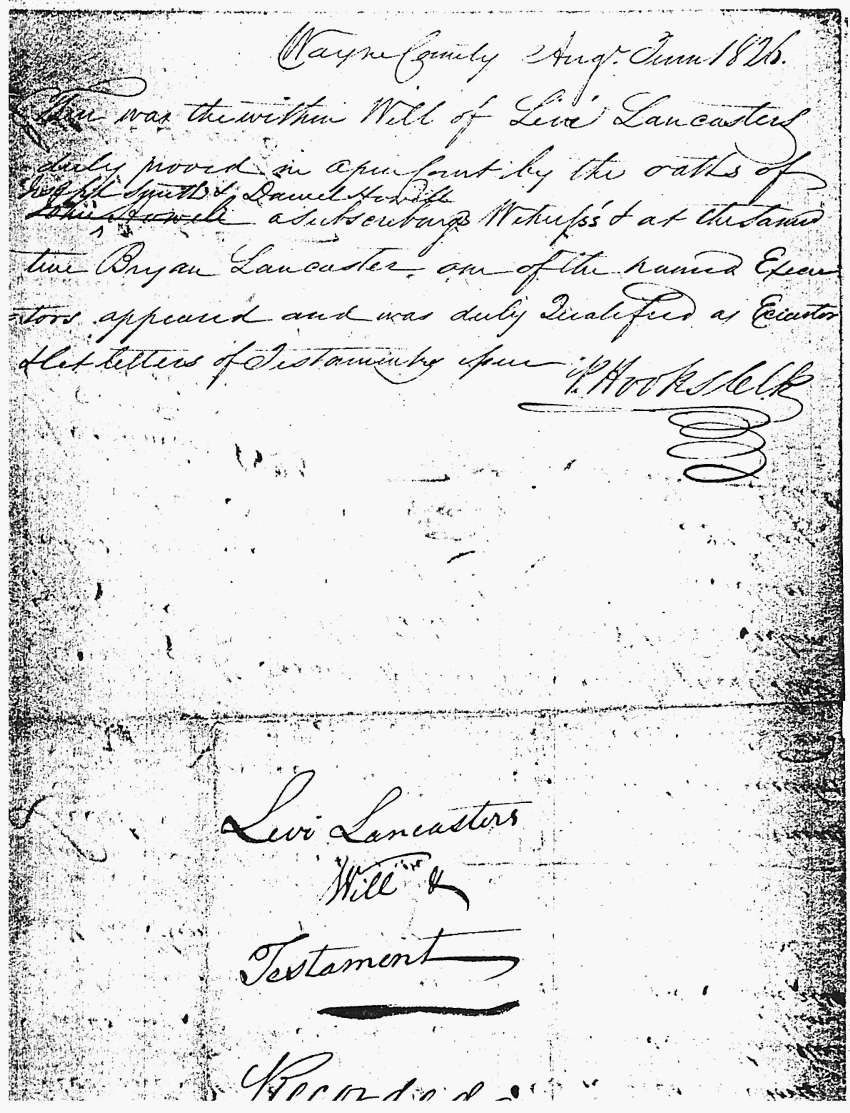 Wayne County Augt. Term 1826.
Then was the within Will of Levi Lancasters
duly proved in open Court by the oaths of
Joseph Smith & Daniel Howell
a subscribing Witness's & at the same
time Bryan Lancaster one of the named Execu
=tors appeared and was duly Qualified as Executor
& let letters of Testamentary issue P. Hooks Clk
Levi Lancasters
Will &
Testament
Recorded